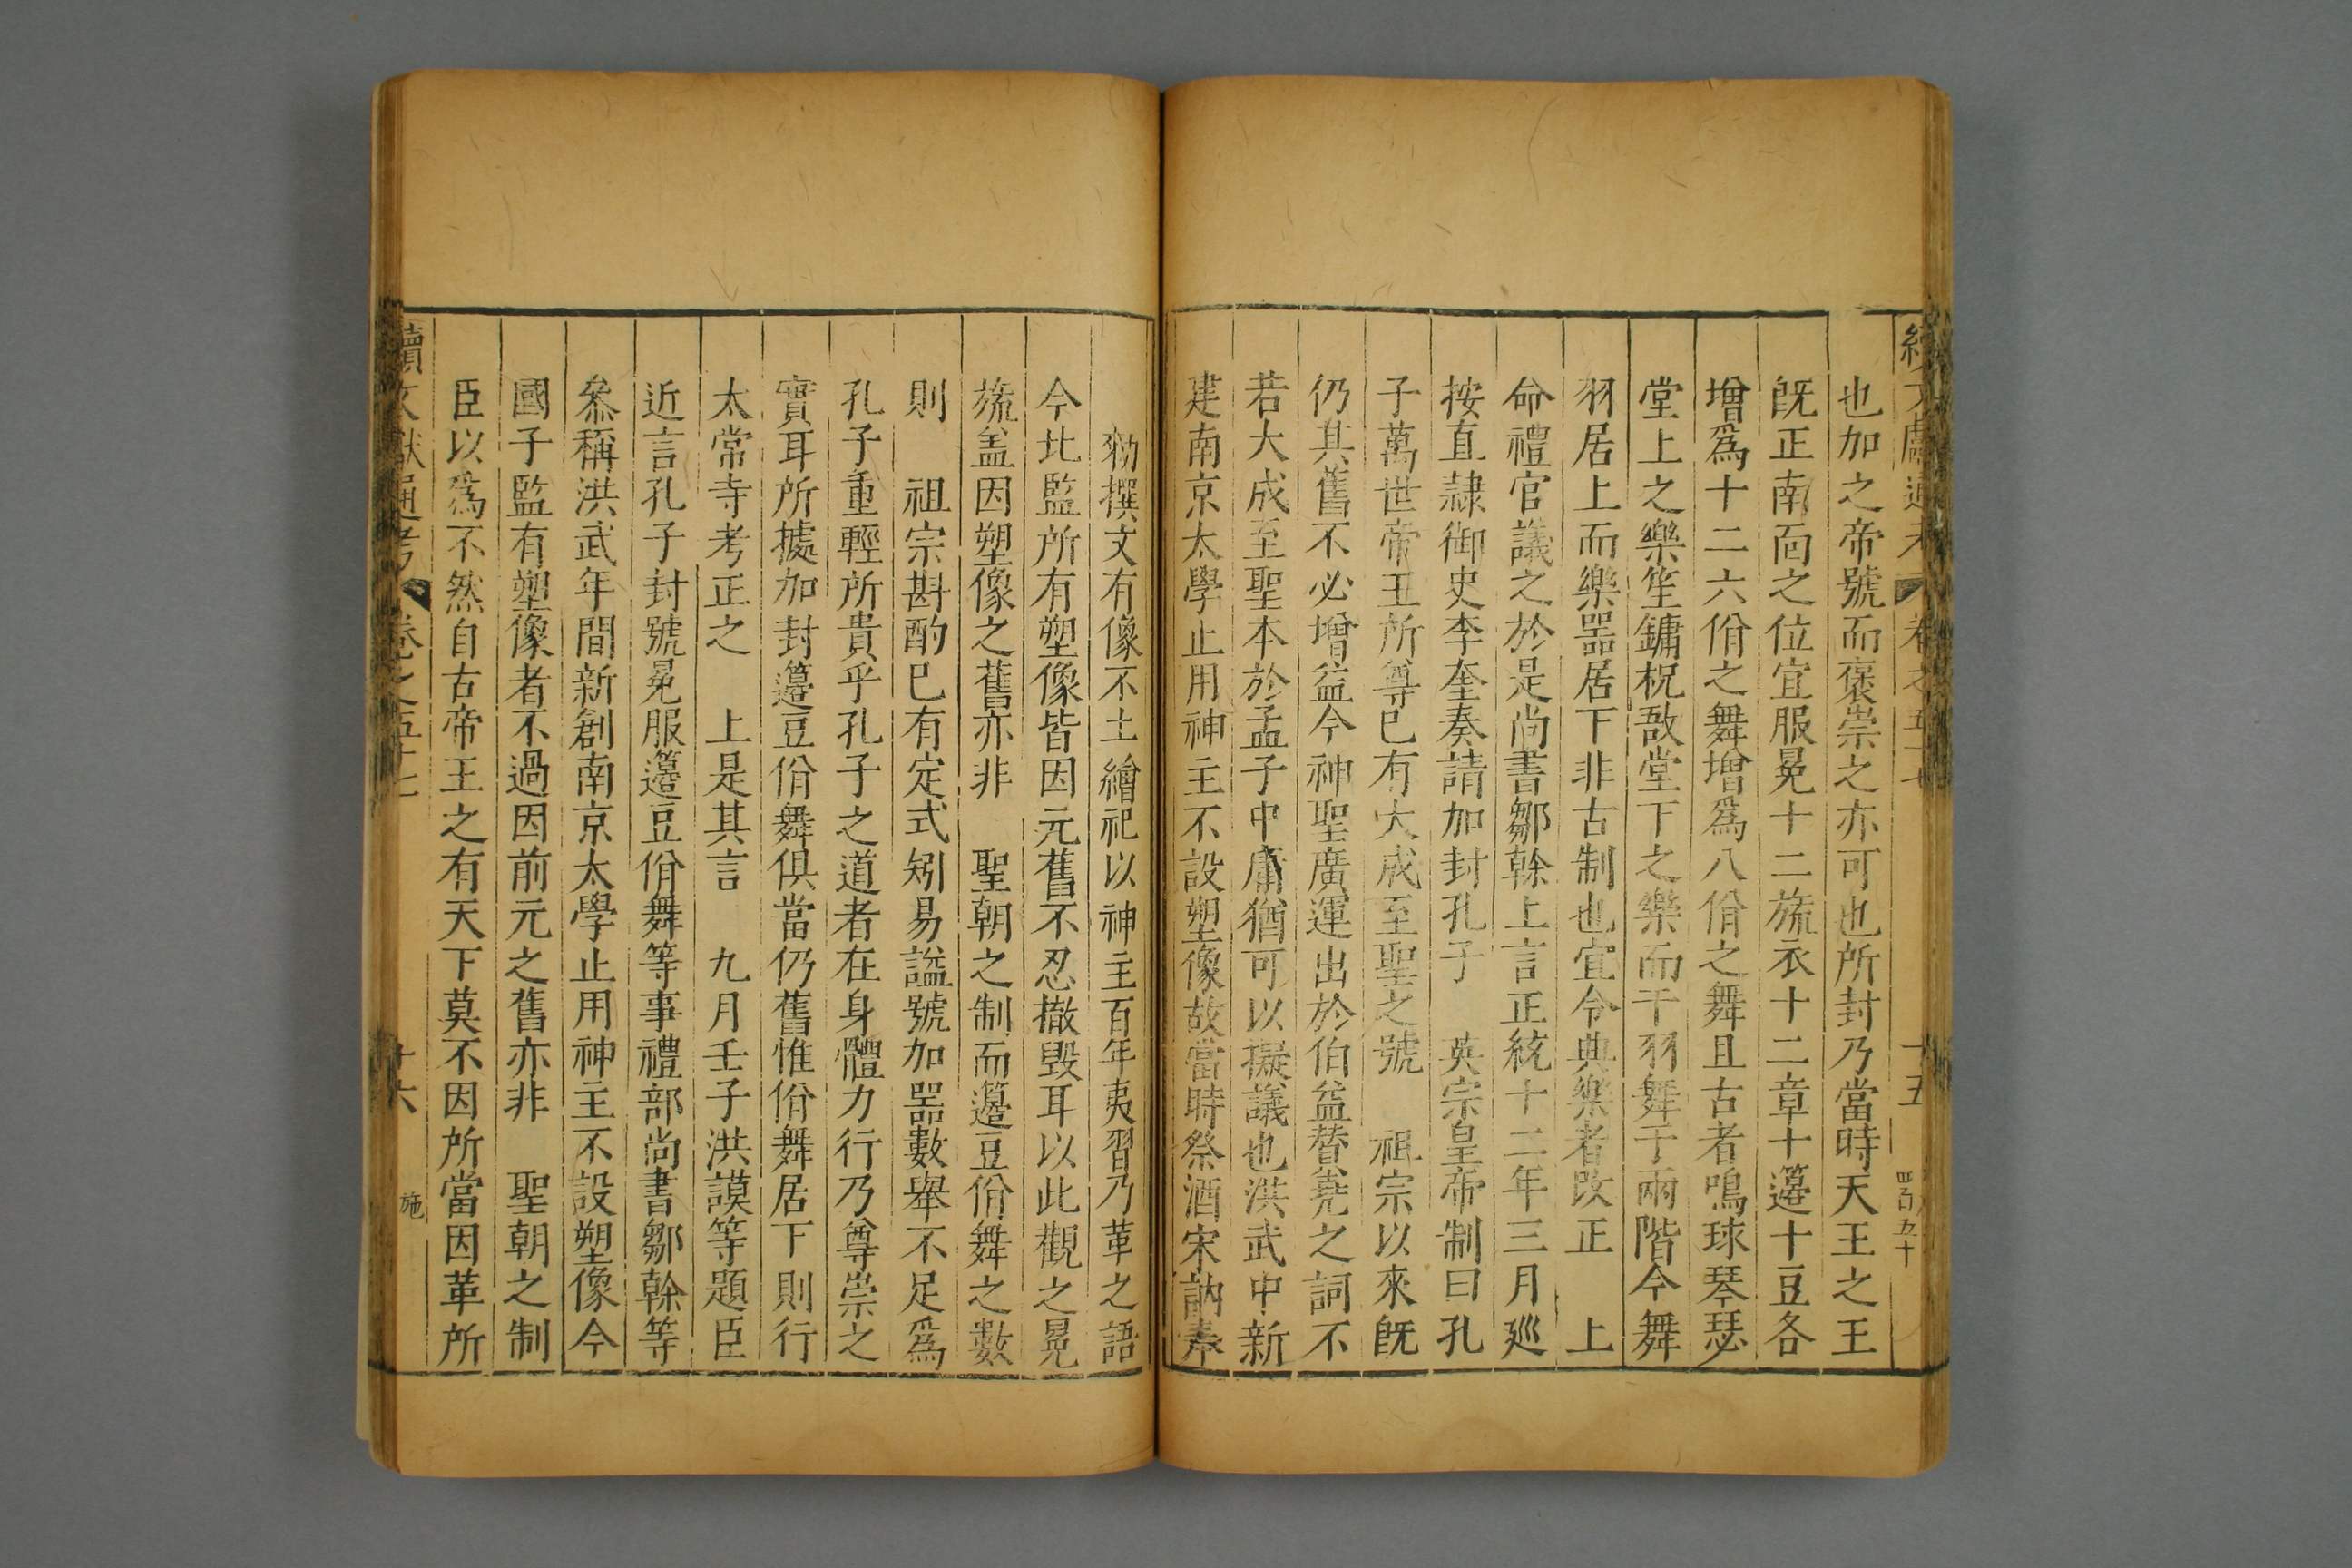 續文獻通考 卷之五十七 十五 四百五十
也加之帝號而褒崇之亦可也所封乃當時天王之王
旣正南面之位宜服冕十二旒衣十二章十籩十豆各
增爲十二六佾之舞增爲八佾之舞且古者鳴球琴瑟
堂上之樂笙鏞柷敔堂下之樂而干羽舞于兩階今舞
羽居上而樂器居下非古制也宜令典樂者改正 上
命禮官議之於是尚書鄒幹上言正統十二年三月廵
按直隷御史李奎奏請加封孔子 英宗皇帝制曰孔
子萬世帝王所尊已有大成至聖之號 祖宗以來旣
仍其舊不必增益今神聖廣運出於伯益賛堯之詞不
若大成至聖本於孟子中庸猶可以擬議也洪武中新
建南京太學止用神主不設塑像故當時祭酒宋訥奉
勑撰文有像不土繪祀以神主百年夷習乃革之語
今北監所有塑像皆因元舊不忍撤毀耳以此觀之冕
旒盖因塑像之舊亦非 聖朝之制而籩豆佾舞之數
則 祖宗斟酌已有定式矧易謚號加器數舉不足爲
孔子重輕所貴乎孔子之道者在身體力行乃尊崇之
實耳所據加封籩豆佾舞俱當仍舊惟佾舞居下則行
太常寺考正之 上是其言 九月壬子洪謨等題臣
近言孔子封號冕服籩豆佾舞等事禮部尚書鄒幹等
叅稱洪武年間新創南京太學止用神主不設塑像今
國子監有塑像者不過因前元之舊亦非 聖朝之制
臣以爲不然自古帝王之有天下莫不因所當因革所
續文獻通考 卷之五十七 十六 施